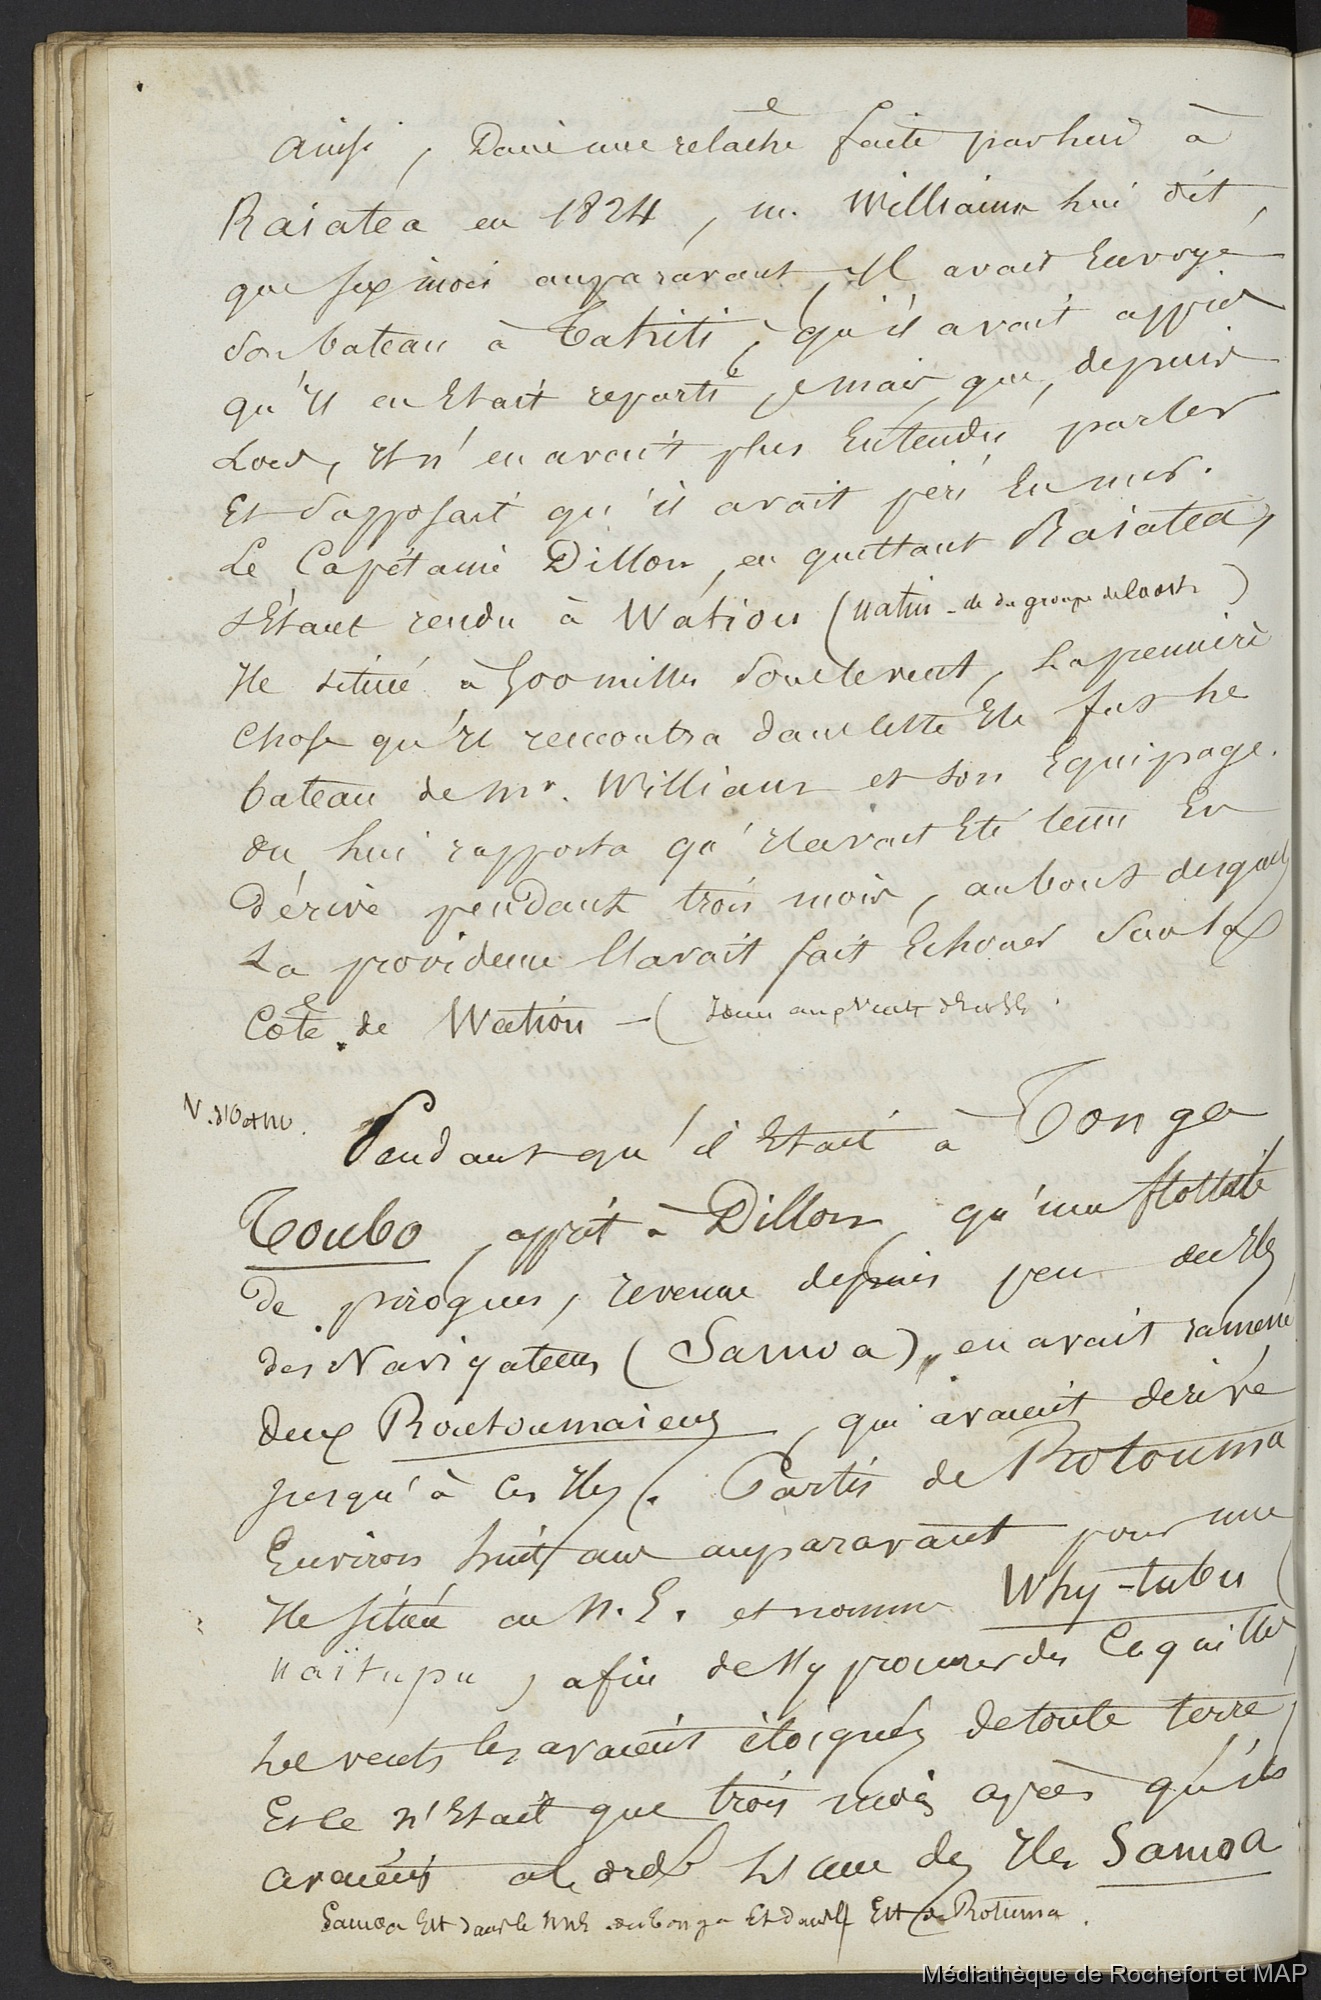 Ainsi, Dans une relâche faite par lui à
Raiatea en 1824, m. Williams lui dit,
que six mois auparavant, Il avait Envoyé
son bateau à Tahiti, qu'il avait appris
qu'Il en Etait reparti, mais que, depuis
Lors, Il n'en avait plus Entendu parler
Et Supposait qu'il avait péri En mer.
Le Capitaine Dillon, en quittant Raiatea,
s'Etant rendu à Watiou ( du groupe de )
Ile située à 500 milles Sous le vent, La première
Chose qu'Il rencontra dans cette Ile fut le
bateau de Mr. Williams et son Equipage.
On lui rapporta qu'Il avait Eté tenu En
dérive pendant trois mois, au bout desquels
La providence l'avait fait Echouer Sur la
Côte de Watiou - (
N.
Pendant qu'il Etait à Tonga
Toubo, apprit à Dillon, qu'une flottille
de pirogues, revenue depuis peu des Iles
des Navigateurs (Samoa), en avait ramené
deux Routoumaiens, qui avaient dérivé
jusqu'à Ces Iles. Partis de Rotouma
Environ huit ans auparavant pour une
Ile située au N.E. et nommée Why-tubu (
Vaïtupu, afin de s'y procurer des Coquilles,
Les vents les avaient éloignés de toute terre,
Et Ce n'Etait que trois mois après qu'ils
avaient abordé L'une des Iles Samoa
Samoa Est dans le NNE de Tonga Et dans l'Est de Rotuma.
Médiathèque de Rochefort et MAP